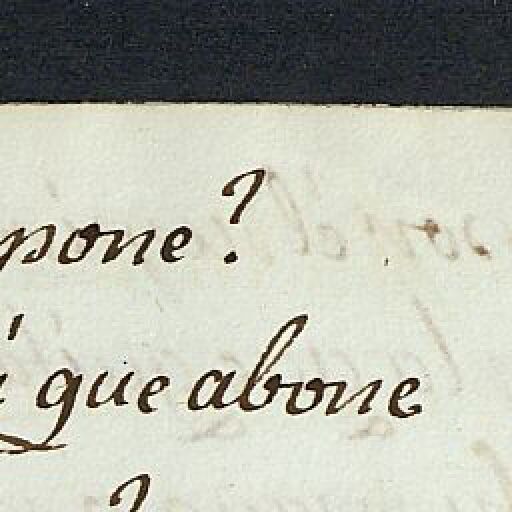 pone?
que abone
?